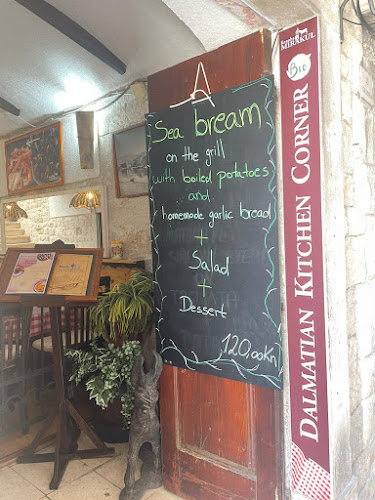 Sea bream
on the grill
with boiled portatoes
and
homemade garlic bread
+
Salad
+
Dessert
120,00Kn
MIRAKUL
Bio
DALMATIAN KITCHEN CORNER